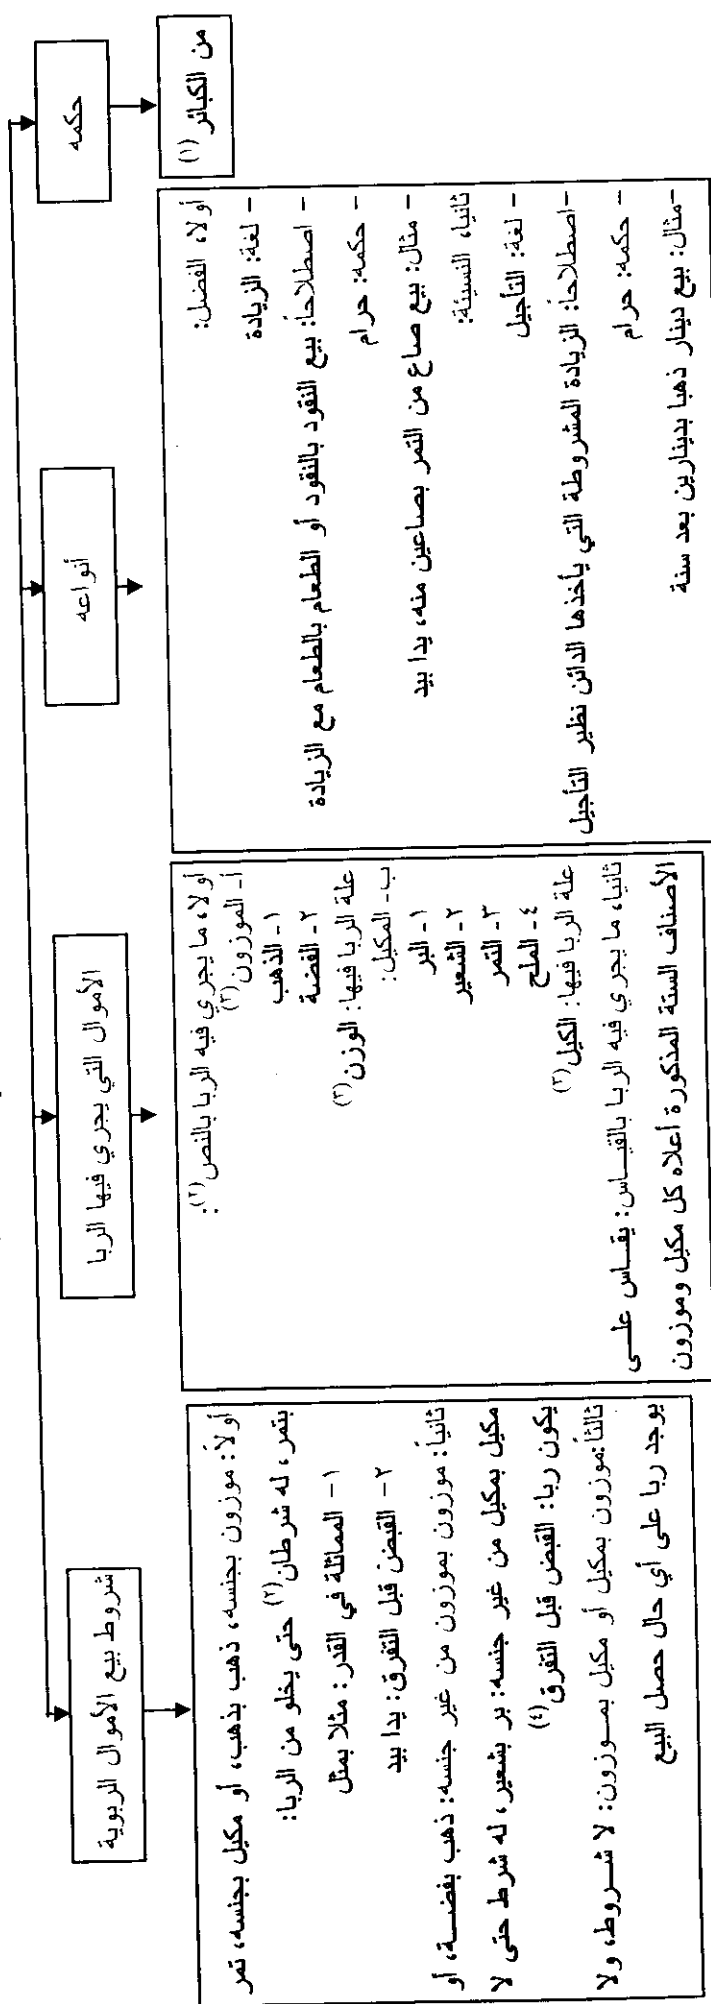 حكمه
من الكبائر (١)
أنواعه
أولا، الفضل:
- لغة: الزيادة
- اصطلاحاً: بيع النقود بالنقود أو الطعام بالطعام مع الزيادة
- حكمه: حرام
- مثال: بيع صاع من التمر بصاعين منه، يدا بيد
ثانيا، النسيئة:
- لغة: التأجيل
-اصطلاحاً: الزيادة المشروطة التي يأخذها الدائن نظير التأجيل
- حكمه: حرام
-مثال: بيع دينار ذهبا بدينارين بعد سنة
الأموال التي يجري فيها الربا
أولا، ما يجري فيه الربا بالنص(٢):
أ- الموزون(٣)
١- الذهب
٢- الفضة
علة الربا فيها: الوزن(٣)
ب- المكيل:
١- البر
٢- الشعير
٣- التمر
٤- الملح
علة الربا فيها: الكيل(٣)
ثانيا، ما يجري فيه الربا بالقياس: يقاس على
الأصناف الستة المذكورة أعلاه كل مكيل وموزون
شروط بيع الأموال الربوية
أولاً: موزون بجنسه، ذهب بذهب، أو مكيل بجنسه، تمر
بتمر، له شرطان(٢) حتى يخلو من الربا:
١- المماثلة في القدر: مثلا بمثل
٢- القبض قبل التفرق: يدا بيد
ثانياً: موزون بموزون من غير جنسه: ذهب بفضة، أو
مكيل بمكيل من غير جنسه: بر بشعير، له شرط حتى لا
يكون ربا: القبض قبل التفرق(٤)
ثالثاً:موزون بمكيل أو مكيل بموزون: لا شروط، ولا
يوجد ربا على أي حال حصل البيع